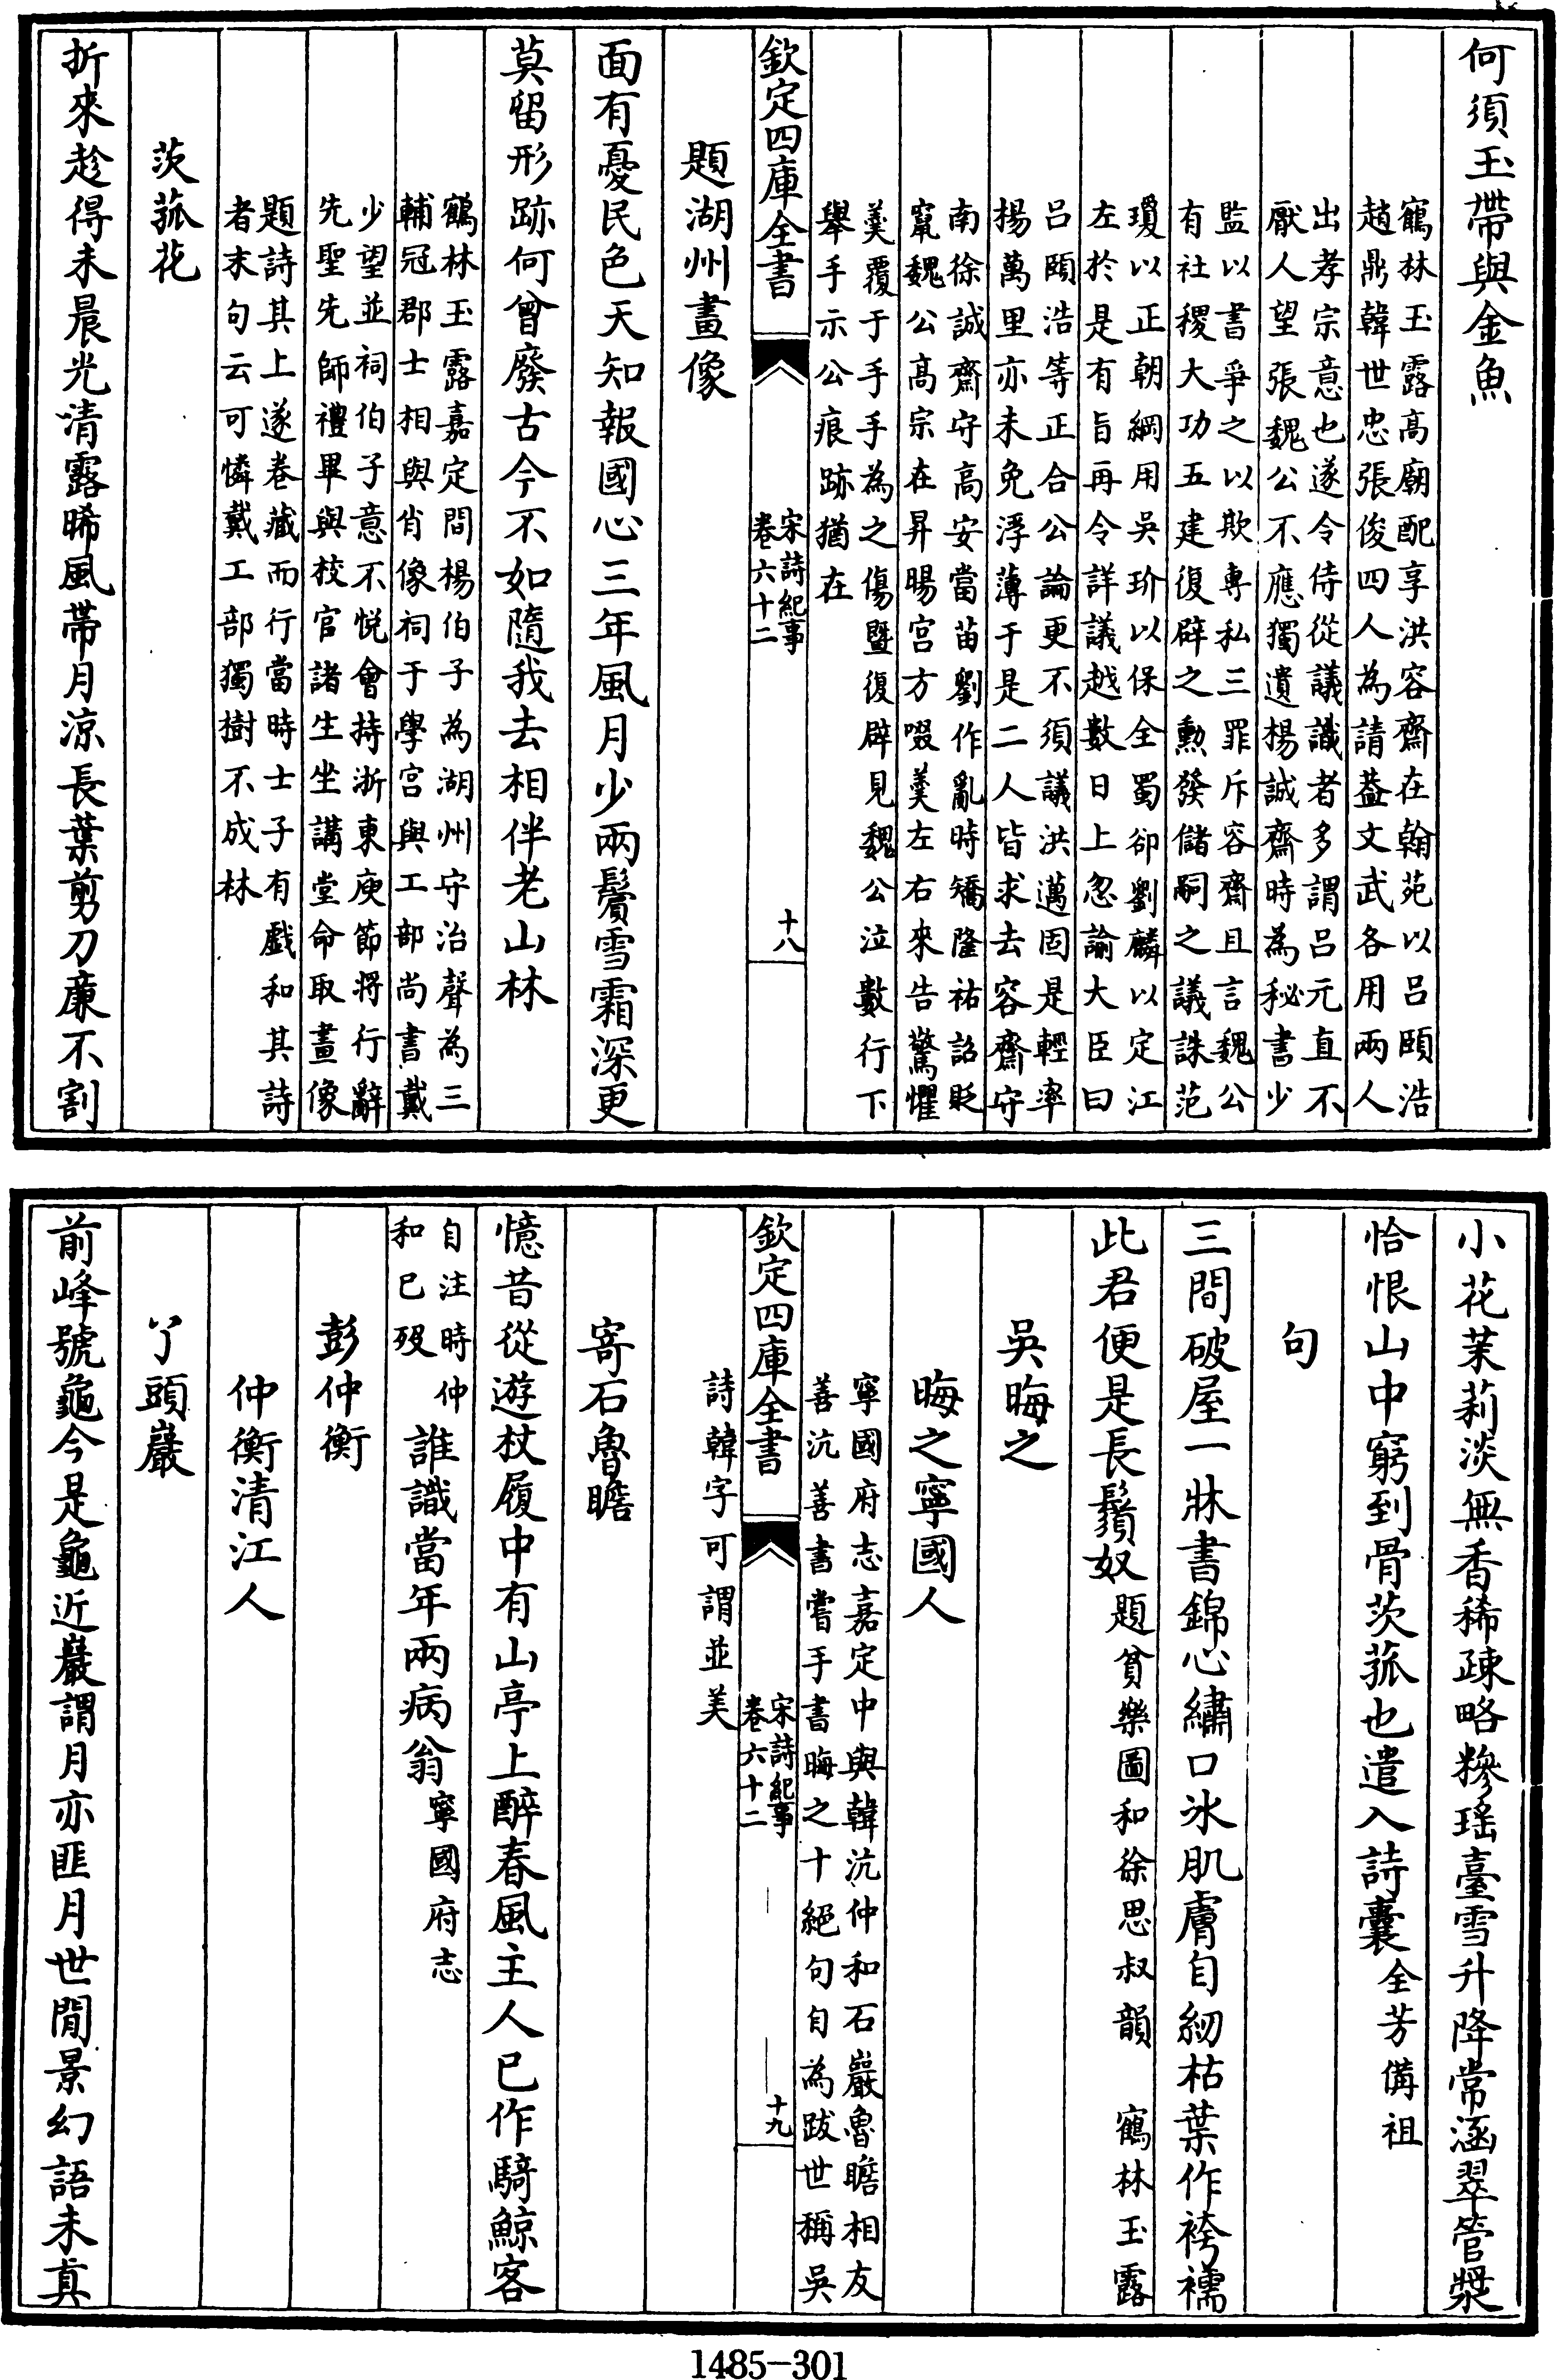 何須玉帶與金魚
鶴林玉露高廟配享洪容齋在翰苑以呂頤浩
趙鼎韓世忠張俊四人為請蓋文武各用兩人
出孝宗意也遂令侍從議識者多謂呂元直不
厭人望張魏公不應獨遺楊誠齋時為秘書少
監以書爭之以欺專私三罪斥容齋且言魏公
有社稷大功五建復辟之勳發儲嗣之議誅范
瓊以正朝綱用吳玠以保全蜀卻劉麟以定江
左於是有旨再令詳議越數日上忽諭大臣曰
呂頤浩等正合公論更不須議洪邁固是輕率
楊萬里亦未免浮薄于是二人皆求去容齋守
南徐誠齋守高安當苗劉作亂時矯隆祐詔貶
竄魏公高宗在昇暘宮方啜羹左右來告驚懼
羹覆于手手為之傷暨復辟見魏公泣數行下
舉手示公痕跡猶在
欽定四庫全書
宋詩紀事
卷六十二
十八
題湖州畫像
面有憂民色天知報國心三年風月少兩鬢雪霜深更
莫留形跡何曾廢古今不如隨我去相伴老山林
鶴林玉露嘉定間楊伯子為湖州守治聲為三
輔冠郡士相與肖像祠于學宮與工部尚書戴
少望並祠伯子意不悅會持浙東庾節將行辭
先聖先師禮畢與校官諸生坐講堂命取畫像
題詩其上遂卷藏而行當時士子有戲和其詩
者末句云可憐戴工部獨樹不成林
茨菰花
折來趁得未晨光清露晞風帶月涼長葉剪刀亷不割
小花茉莉淡無香稀疎略糝瑤臺雪升降常涵翠管漿
恰恨山中窮到骨茨菰也遣入詩囊全芳備祖
句
三間破屋一牀書錦心繡口冰肌膚自紉枯葉作袴襦
此君便是長鬚奴題貧樂圖和徐思叔韻　鶴林玉露
吳晦之
晦之寧國人
寧國府志嘉定中與韓沆仲和石巖魯瞻相友
善沆善書嘗手書晦之十絕句自為跋世稱吳
詩韓字可謂並美
欽定四庫全書
宋詩紀事
卷六十二
十九
寄石魯瞻
憶昔從遊杖履中有山亭上醉春風主人已作騎鯨客
自注時仲
和已歿
誰識當年兩病翁寧國府志
彭仲衡
仲衡清江人
丫頭巖
前峰號龜今是龜近巖謂月亦匪月世間景幻語未真
1485-301